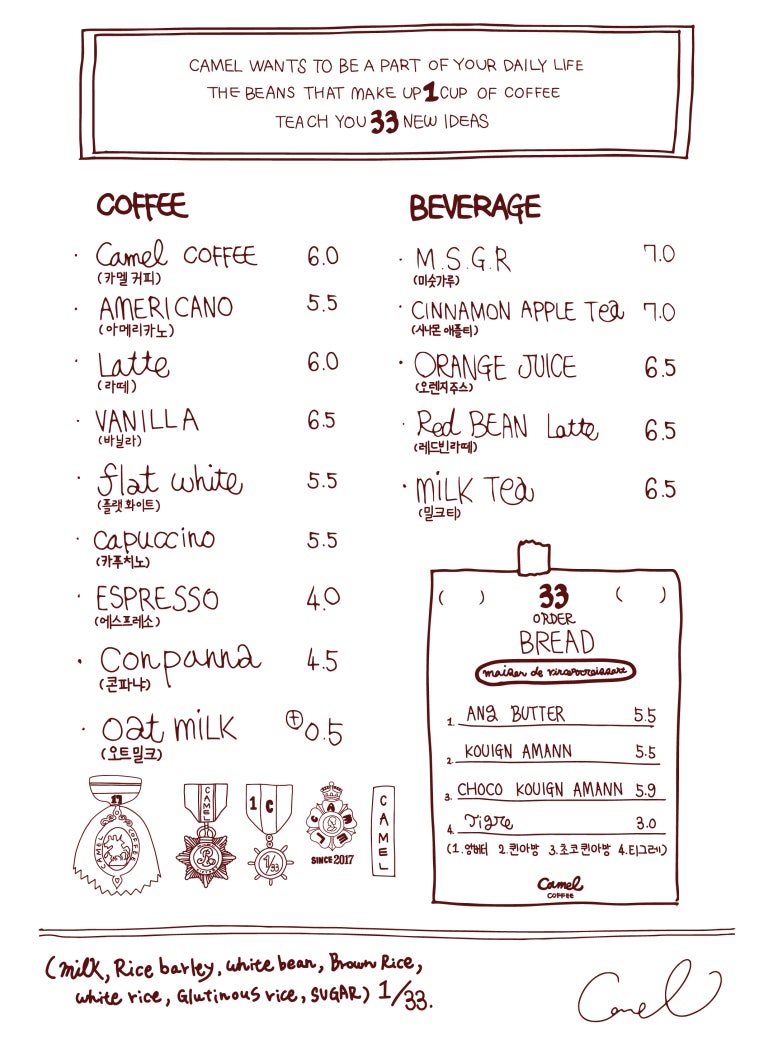 CAMEL WANTS TO BE A PART OF YOUR DAILY LIFE
THE BEANS THAT MAKE UP 1 CUP OF COFFEE
TEACH YOU 33 NEW IDEAS
COFFEE
· Camel COFFEE 6.0
(카멜 커피)
· AMERICANO 5.5
(아메리카노)
· Latte 6.0
(라떼)
· VANILLA 6.5
(바닐라)
· flat white 5.5
(플랫 화이트)
· Capuccino 5.5
(카푸치노)
· ESPRESSO 4.0
(에스프레소)
· Conpanna 4.5
(콘파냐)
· Oat MiLK +0.5
(오트밀크)
BEVERAGE
· M.S.G.R 7.0
(미숫가루)
· CINNAMON APPLE Tea 7.0
(시나몬 애플티)
· ORANGE JUICE 6.5
(오렌지주스)
· Red BEAN Latte 6.5
(레드빈라떼)
· MiLK Tea 6.5
(밀크티)
( ) 33 ( )
ORDER
BREAD
1. ANG BUTTER 5.5
2. KOUIGN AMANN 5.5
3. CHOCO KOUIGN AMANN 5.9
4. Tigre 3.0
(1. 앙버터 2. 퀸아망 3. 초코퀸아망 4. 티그레)
Camel
COFFEE
CAMEL COFFEE
CAMEL
1 C
1/33
CAMEL
SINCE 2017
CAMEL
(Milk, Rice barley, white bean, Brown Rice,
white rice, Glutinous rice, SUGAR) 1/33.
Camel